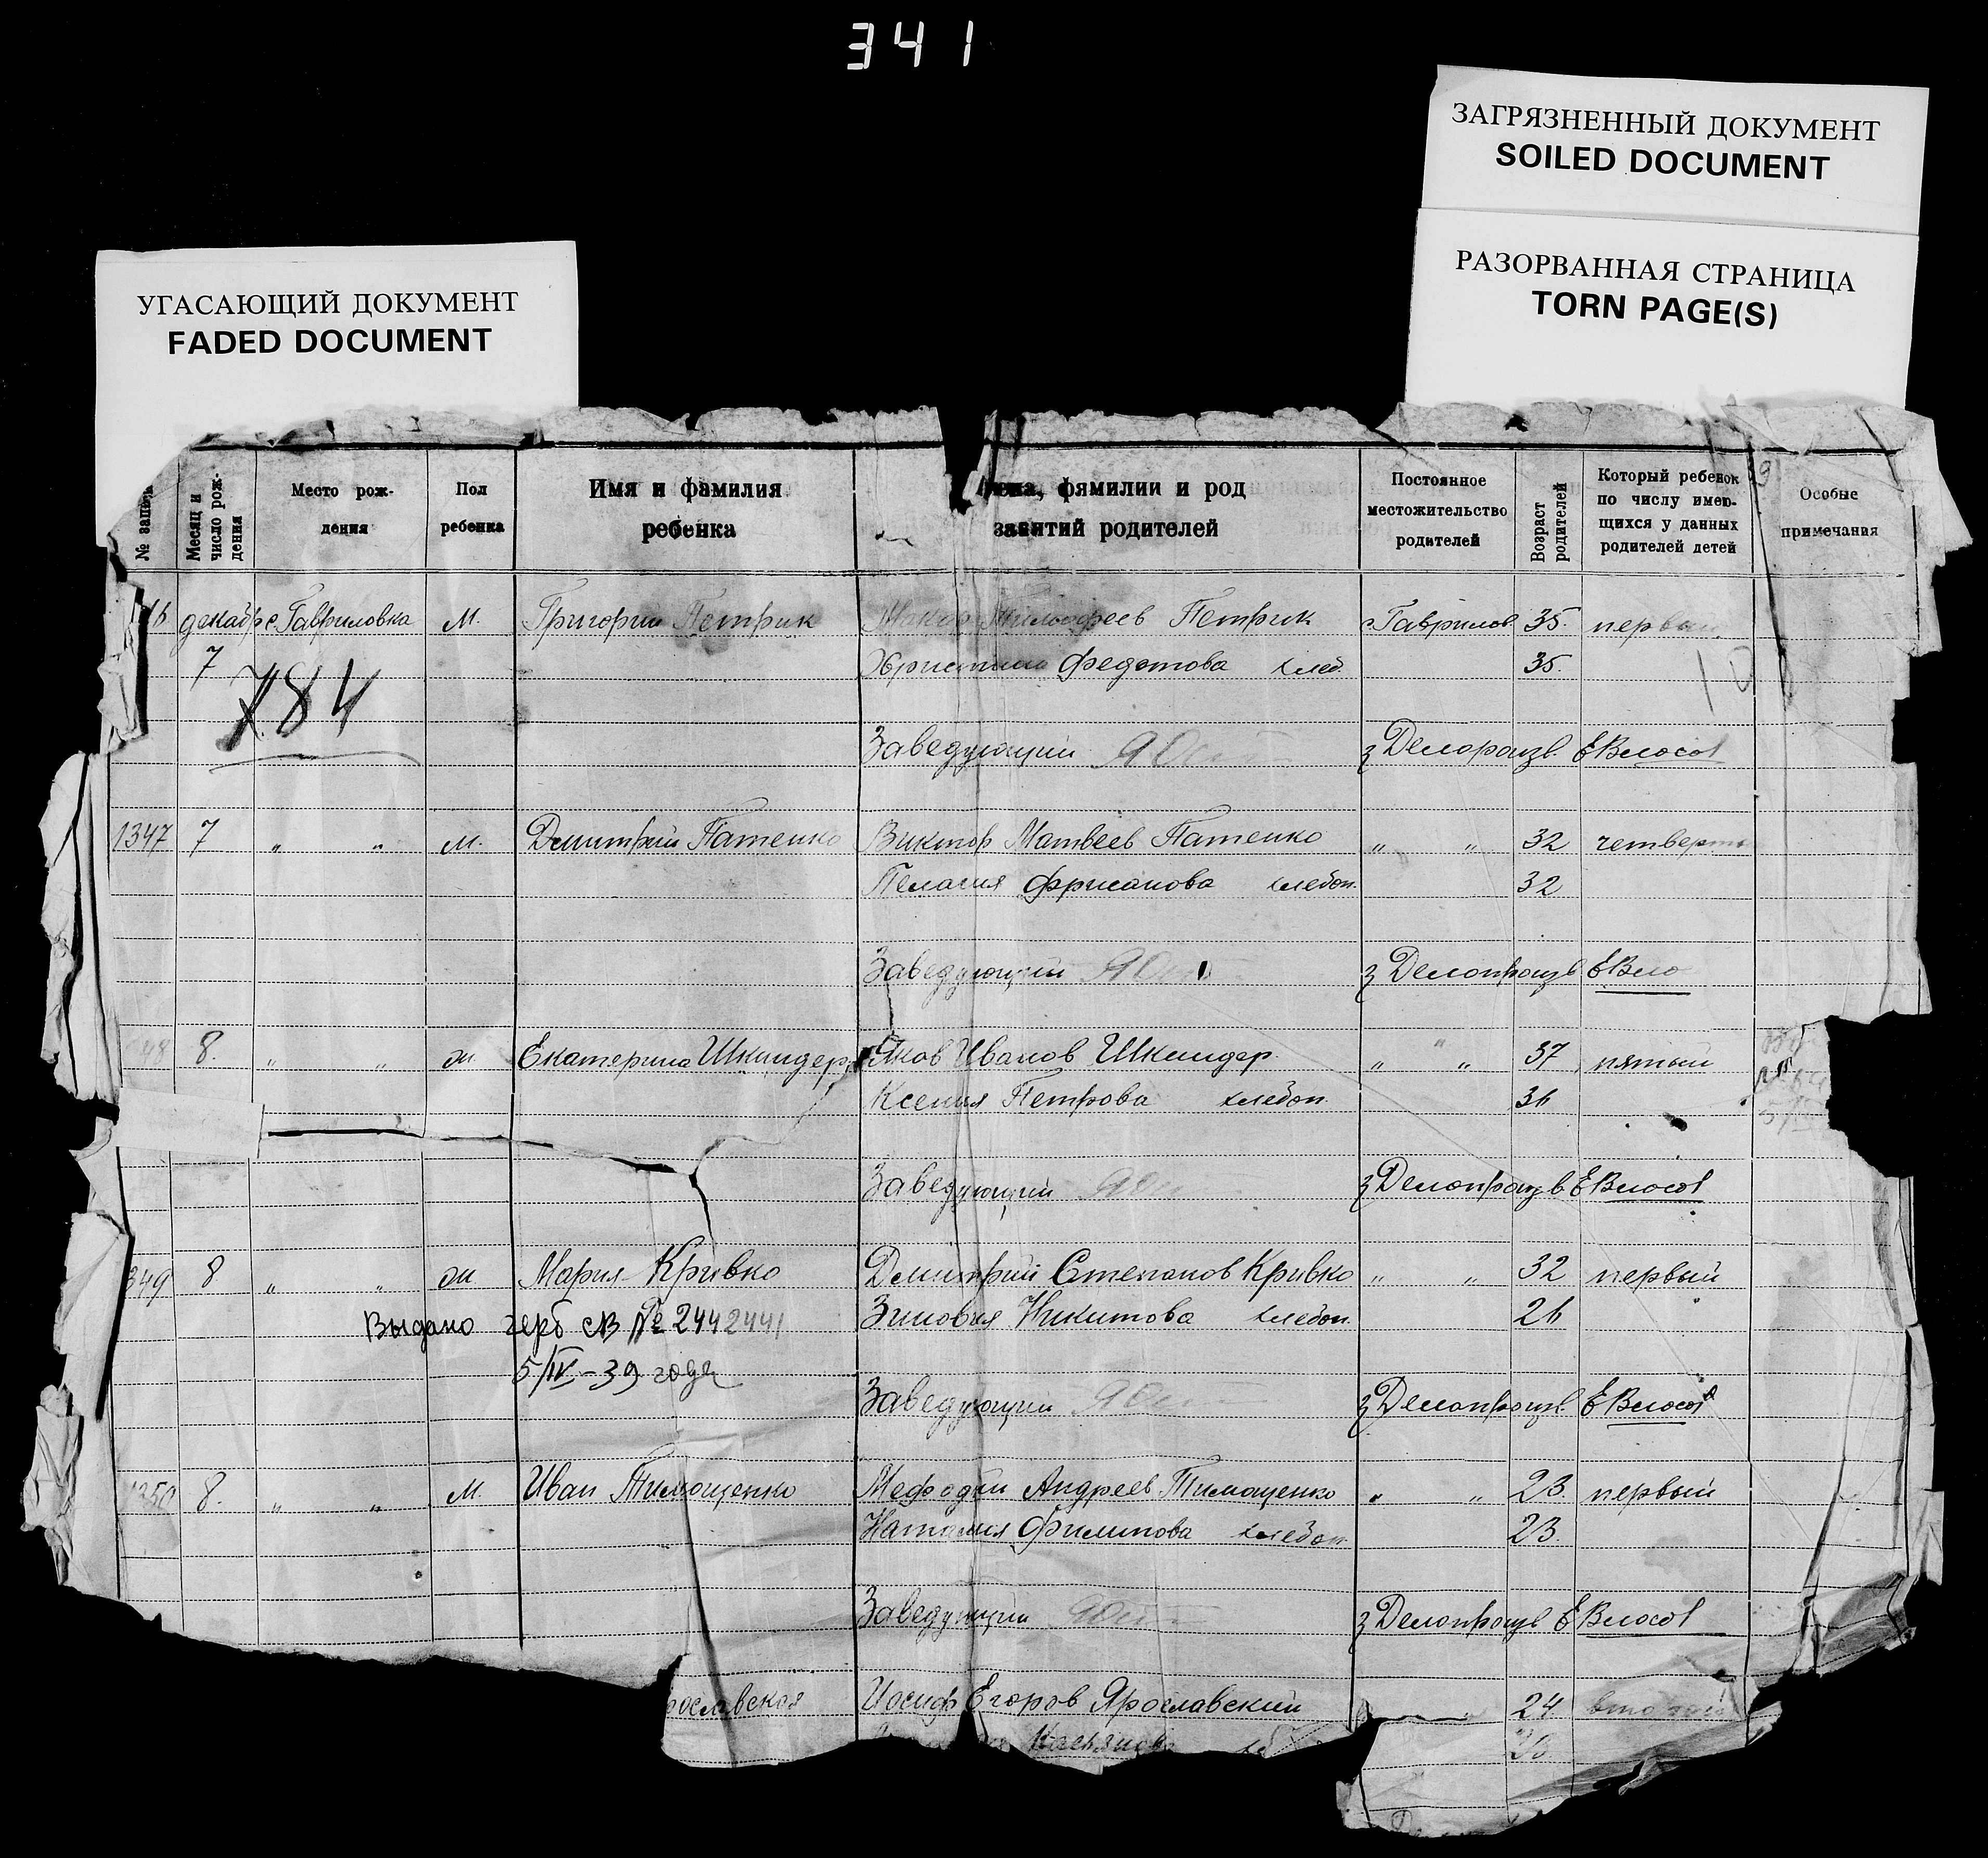 341
ЗАГРЯЗНЕННЫЙ ДОКУМЕНТ
SOILED DOCUMENT
РАЗОРВАННАЯ СТРАНИЦА
TORN PAGE(S)
УГАСАЮЩИЙ ДОКУМЕНТ
FADED DOCUMENT
№
Месяц и число рож-дения
Место рож-дения
Пол ребенка
Имя и фамилия ребенка
фямилии и род занятий родителей
Постоянное местожительство родителей
Возраст родителей
Который ребенок по числу имею-щихся у данных родителей детей
Особые примечания
декабр с. Гавриловка м. Григорий Петрик Петрик с. Гаврилов 35. первый
7 Федотова хлеб. 35.
784
Заведующий з Делопроизв. ЕВлосов
1347 7 " " м. Дмитрий Патенко Виктор Матвеев Патенко " " 32 четверты
Пелагия хлебоп. 32
Заведующий з Делопроизв ЕВло
8. " " ж. Екатерина Шкиндер Яков Иванов Шкиндер. " " 37 пятый
Ксения Петрова хлебоп. 36
Заведующий з Делопроизв ЕВлосов
349 8 " " ж Мария Кривко Дмитрий Степанов Кривко " " 32 первый
Выдано герб св № 2442441 Зиновия Никитова хлебоп. 26
5/IV-39 года
Заведующий з Делопроизв. ЕВлосов
1350 8. " " м. Иван Тимощенко Мефодий Андреев Тимощенко " " 23. первый
Наталия Филипова хлебоп. 23.
Заведующий з Делопроизв ЕВлосов
рославская Иосиф Егоров Ярославский " 24 второй